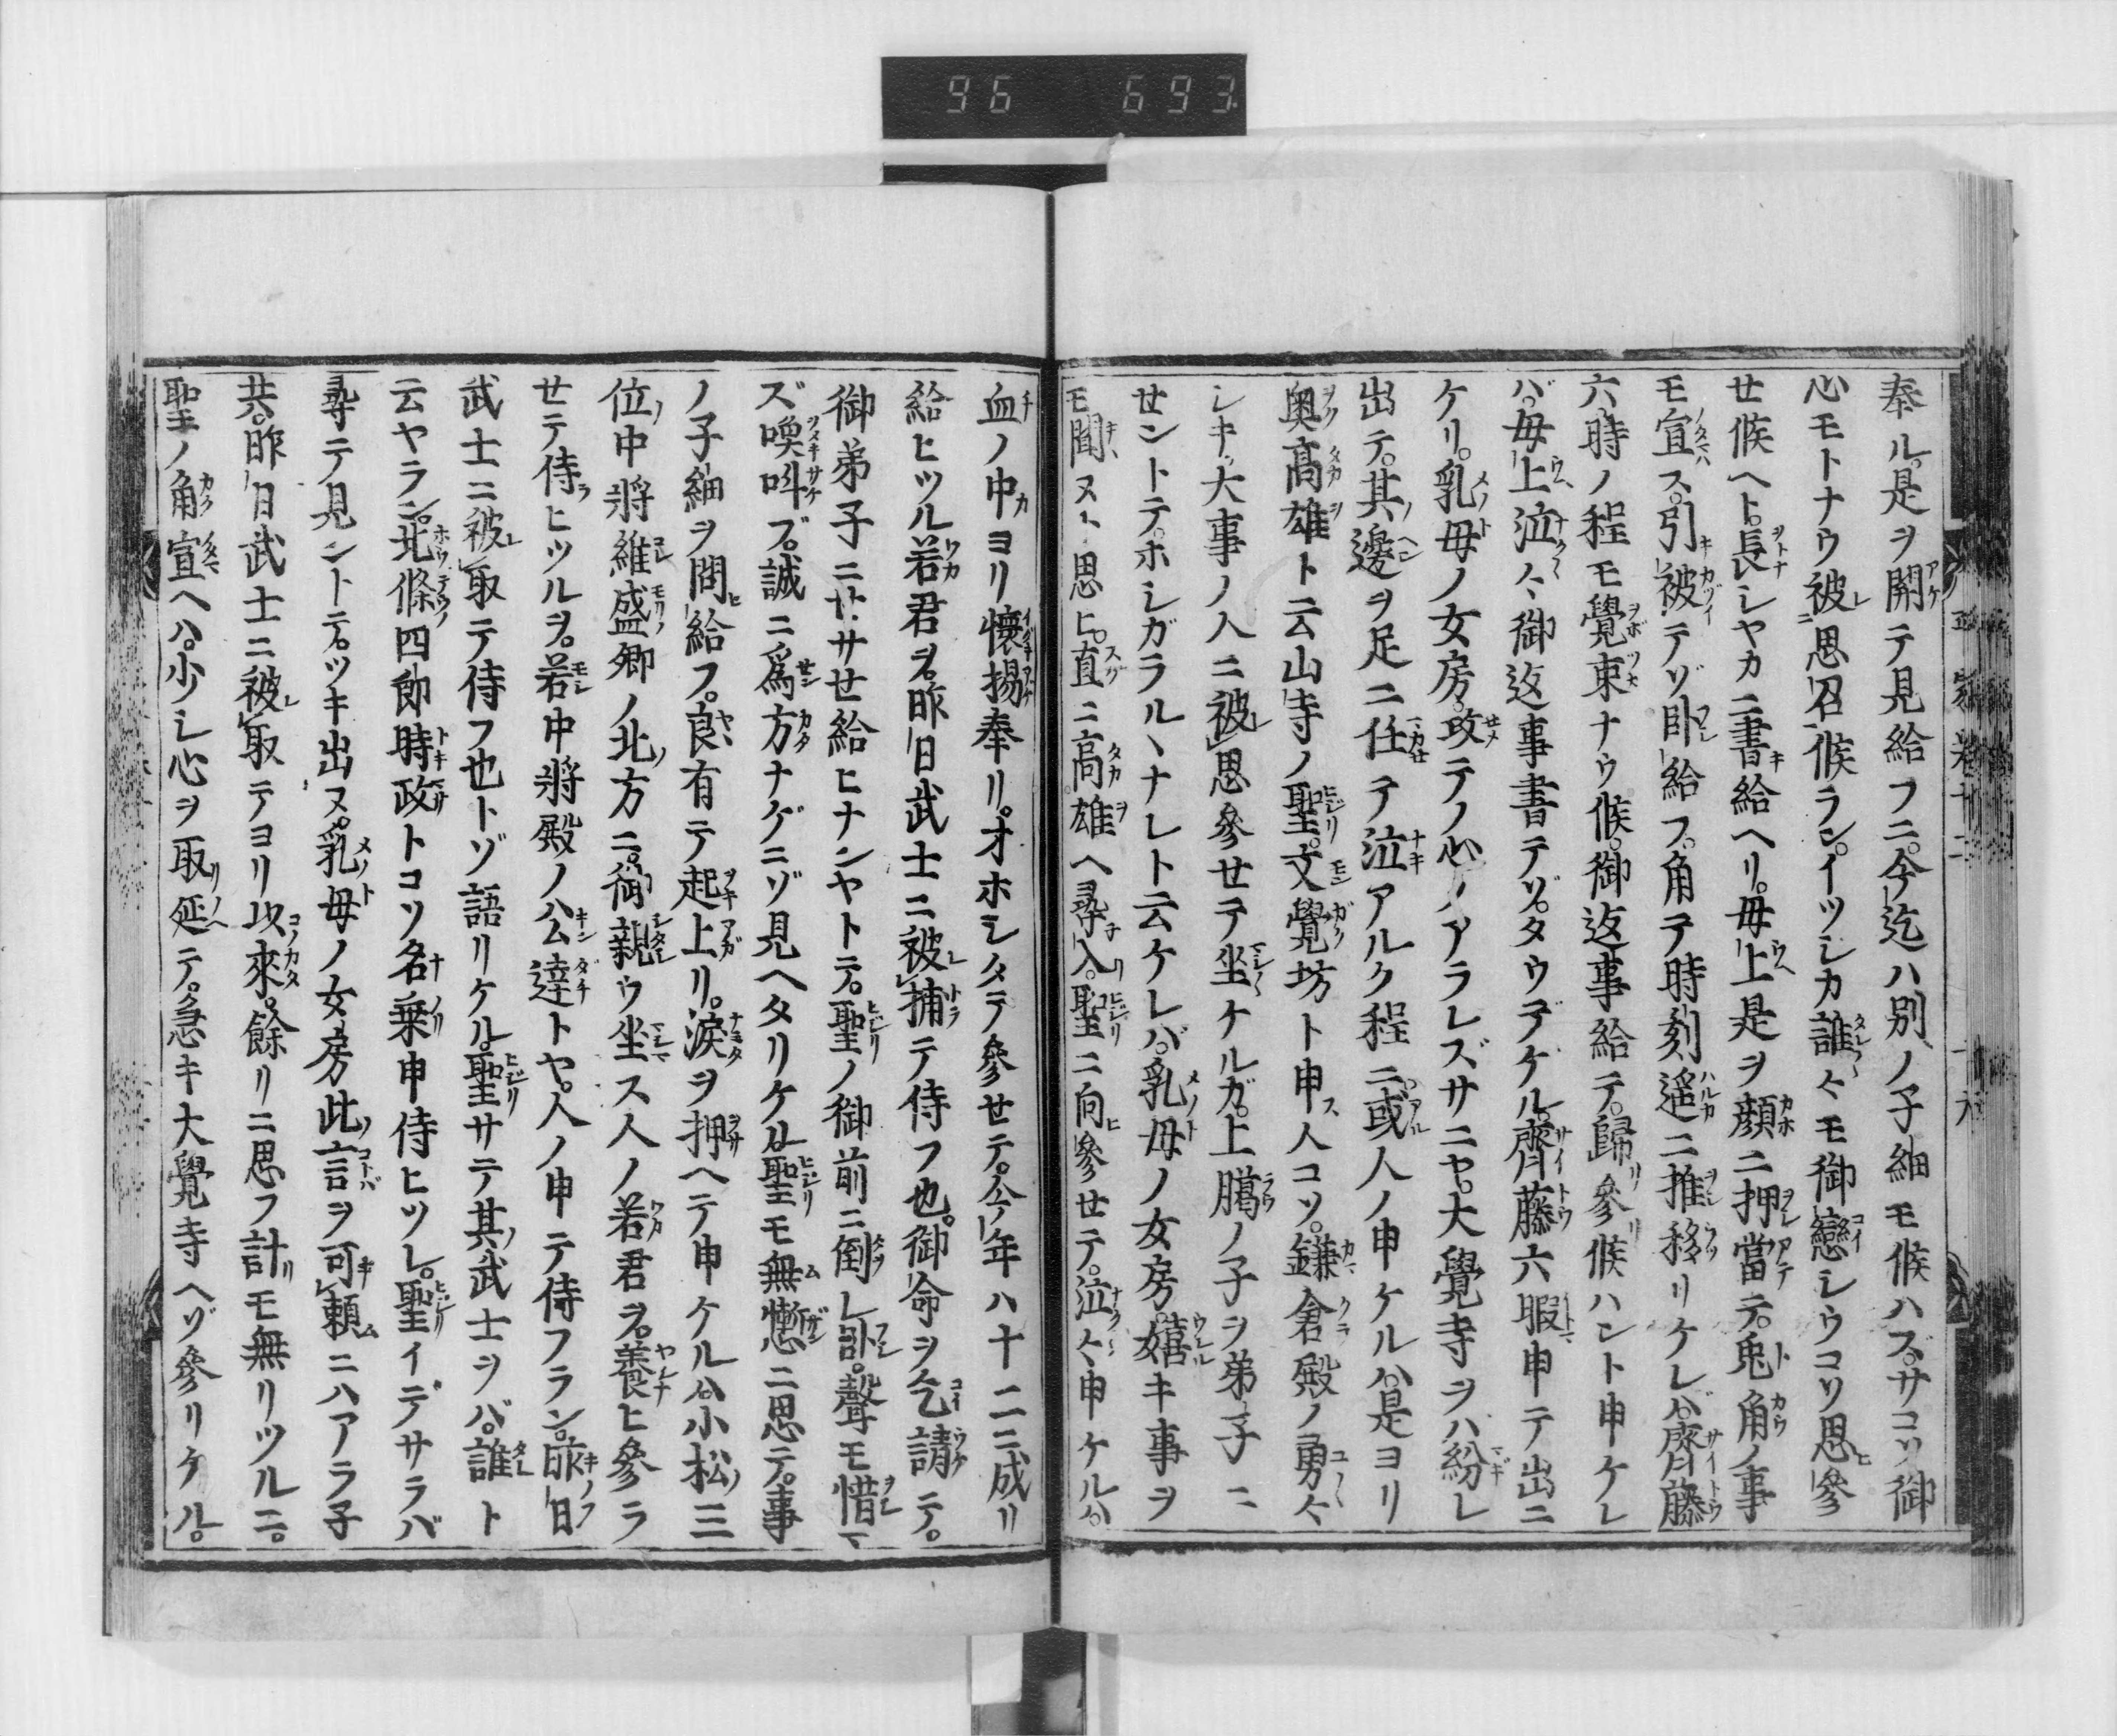 96 693
奉ル。是ヲ開テ見給フニ。今迄ハ別ノ子細モ候ハズ。サコソ御
心モトナウ被思召候ラン。イツシカ誰々モ御戀シウコソ思參
セ候ヘト。長シヤカニ書給ヘリ。母上是ヲ顔ニ押當テ。兎角ノ事
モ宣ハス。引被テゾ臥給フ。角テ時刻遥ニ推移リケレバ。齊藤
六時ノ程モ覺束ナウ候。御返事給テ。歸リ參リ候ハント申ケレ
バ。母上泣々御返事書テゾ。タウデゲル。齊藤六暇申テ出ニ
ケリ。乳母ノ女房。攻テノ心ノアラレズサニヤ。大覺寺ヲハ紛レ
出テ。其ノ邊ヲ足ニ任テ泣アルク程ニ。或人ノ申ケルハ。是ヨリ
奥高雄ト云山寺ノ聖。文覺坊ト申ス人コソ。鎌倉殿ノ勇々
シキ。大事ノ人ニ被思參セテ坐ケルガ。上臈ノ子ヲ弟子ニ
セントテ。ホシガラルヽナレト云ケレバ。乳母ノ女房。嬉キ事ヲ
モ聞ヌト思ヒ。直ニ高雄ヘ尋入リ。聖ニ向ヒ參セテ。泣々申ケルハ。
血ノ中ヨリ懷揚奉リ。オホシタテ參セテ。今年ハ十二ニ成リ
給ヒツル若君ヲ。昨日武士ニ被捕テ侍フ也。御命ヲ乞請テ。
御弟子ニナサセ給ヒナンヤトテ。聖ノ御前ニ倒レ臥。聲モ惜マ
ズ喚叫ブ。誠ニ爲方ナゲニゾ見ヘタリケル。聖モ無慙ニ思テ。事
ノ子細ヲ問給フ。良有テ起上リ。涙ヲ押ヘテ申ケルハ。小松ノ三
位ノ中將維盛卿ノ北ノ方ニ。御親ウ坐ス人ノ若君ヲ。養ヒ參ラ
セテ侍ラヒツルヲ。若中將殿ノ公達トヤ。人ノ申テ侍フラン。昨日
武士ニ被取テ侍フ也トゾ語リケル。聖サテ其ノ武士ヲバ。誰ト
云ヤラン。北條ノ四郎時政トコソ名乗申侍ヒツレ。聖イデサラバ
尋テ見ントテ。ツキ出ヌ。乳母ノ女房此ノ言ヲ可頼ムニハアラ子
共。昨日武士ニ被取テヨリ以來。餘リニ思フ計リモ無リツルニ。
聖ノ角宣ヘハ。少シ心ヲ取リ延テ。急キ大覺寺ヘゾ參リケル。